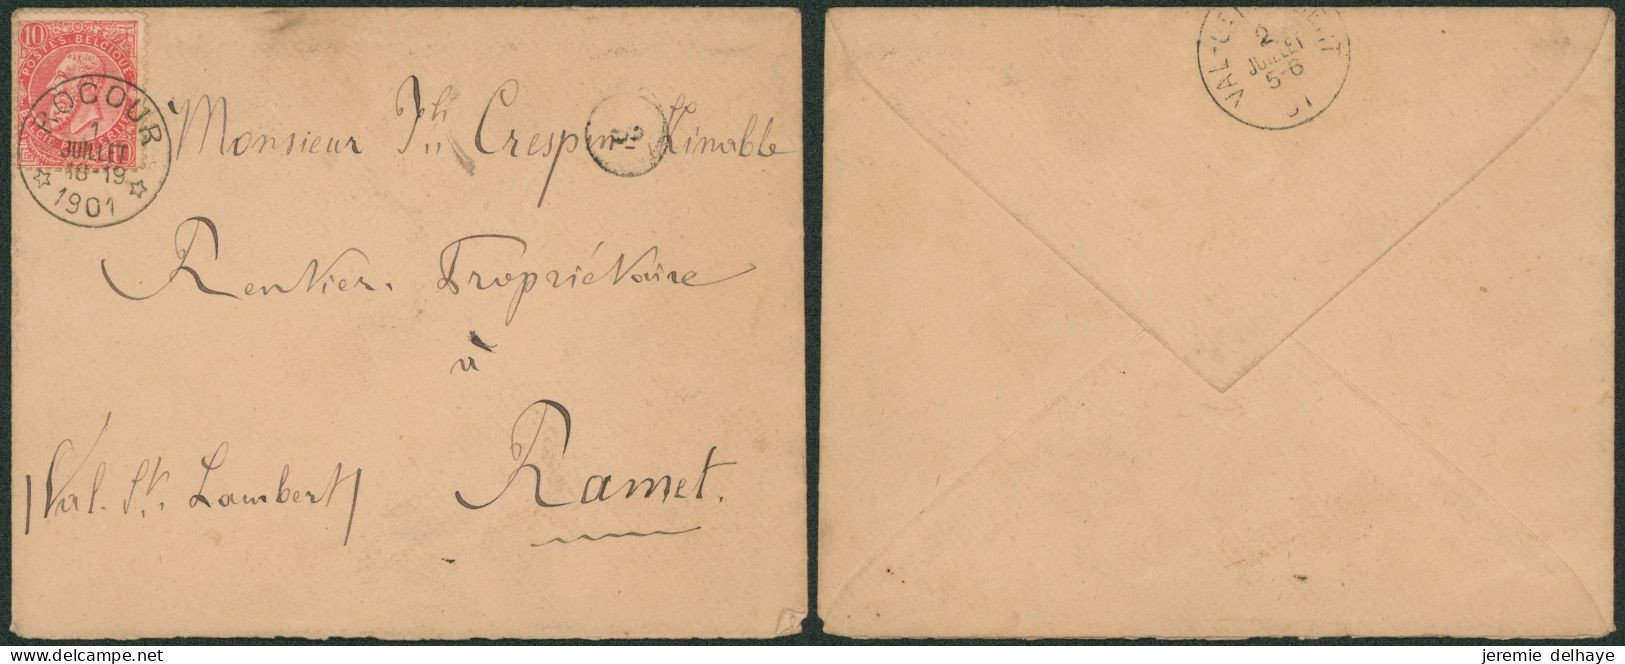 10
POSTES. BELGIQUE
ROCOUR
1
JUILLET
18-19
1901
Monsieur Jh Crespin Kinable
Rentier. Propriétaire
à
Val. St. Lambert
Ramet.
2
JUILLET
5-6
01
jeremie delhaye